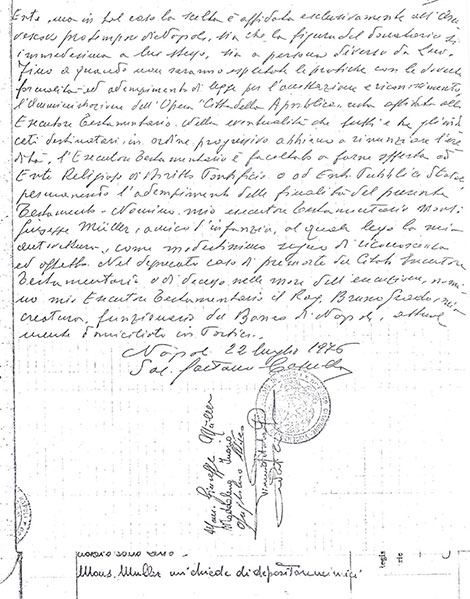 Ente, ma in tal caso la scelta è affidata esclusivamente all'Arci
vescovo protempore di Napoli, sia che la figura del donatario si
immedesima a lui stesso, sia a persona diversa da Lui.
Fino a quando non saranno espletate le pratiche con le dovute
formalità ed adempimenti di legge per l'accettazione e riconoscimento,
l'Amministrazione dell'Opera "Cittadella Apostolica" resta affidata allo
Esecutore Testamentario. Nella eventualità che tutti e tre gli indi
cati destinatari, in ordine progressivo abbiano a rinunziare l'ere
dità, l'Esecutore Testamentario è facoltato a farne offerta ad
Ente Religioso di Diritto Pontificio o ad Ente Pubblico Statale
per l'adempimento delle finalità del presente
Testamento. Nomino mio esecutore testamentario Mons.
Giuseppe Müller, amico d'infanzia, al quale lego la mia
autovettura, come modestissimo segno di riconoscenza
ed affetto. Nel deprecato caso di premorte del citato Esecutore
Testamentario o di decesso nelle more dell'esecuzione, nomi
no mio Esecutore Testamentario il Rag. Bruno
creatura, funzionario del Banco di Napoli, attual
mente domiciliato in Portici.
Napoli 22 luglio 1976
Sac. Gaetano
Mons. Giuseppe Müller
Maddalena
Guglielmo
Mons. Muller mi chiede di depositare nei miei